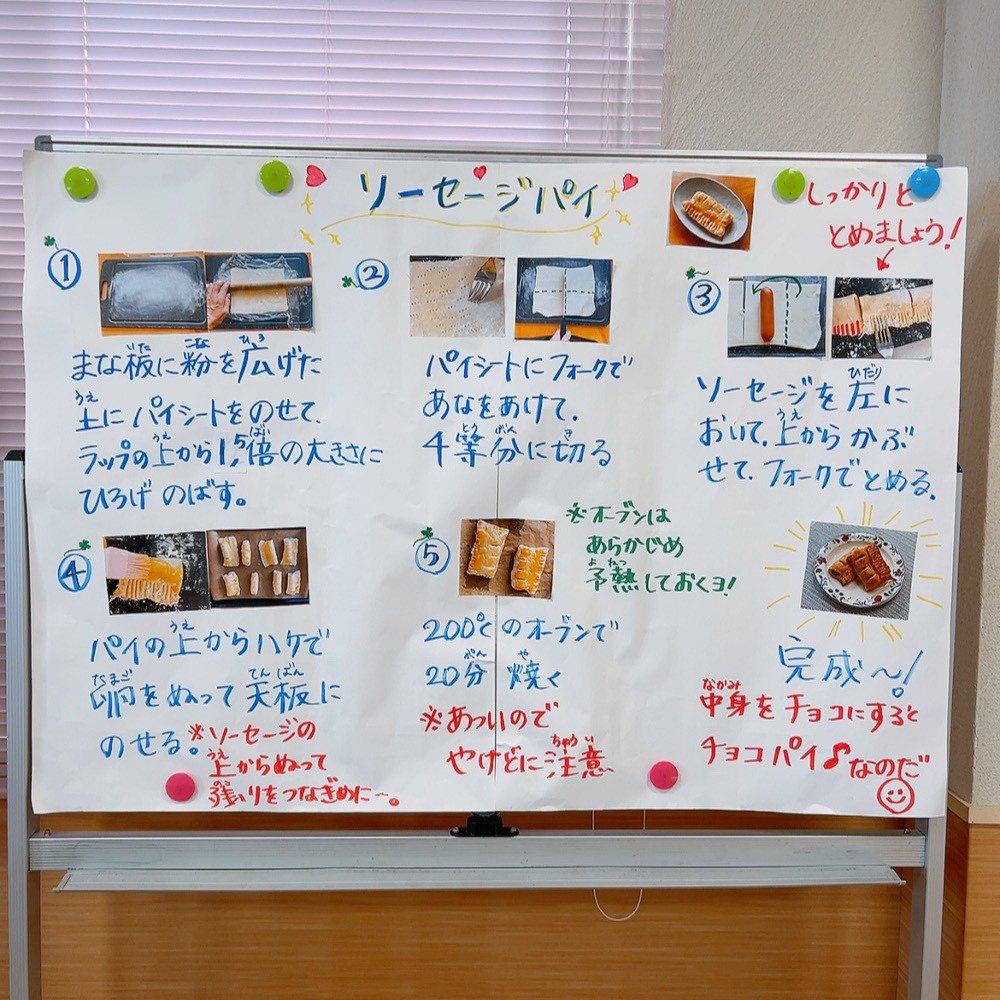 ソーセージパイ
しっかりと
とめましょう!
①
まな板に粉を広げた
上にパイシートをのせて、
ラップの上から1,5倍の大きさに
ひろげのばす。
②
パイシートにフォークで
あなをあけて、
4等分に切る
③
ソーセージを左に
おいて、上からかぶ
せて、フォークでとめる。
④
パイの上からハケで
卵をぬって天板に
のせる。
※ソーセージの
上からぬって
残りをつなぎめに〜。
⑤
※オーブンは
あらかじめ
予熱しておくヨ!
200℃のオーブンで
20分焼く
※あついので
やけどに注意
完成〜!
中身をチョコにすると
チョコパイ♪なのだ